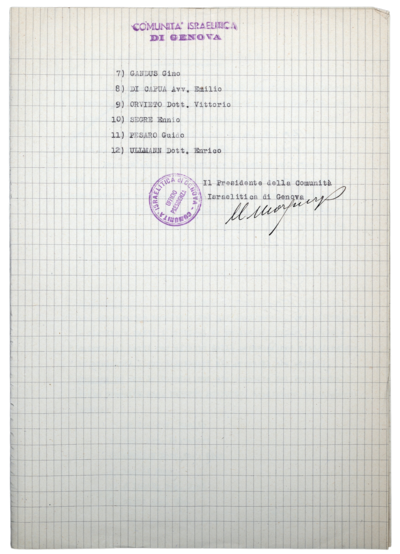 COMUNITA' ISRAELITICA
DI GENOVA
7) GANDUS Gino
8) DI CAPUA Avv. Emilio
9) ORVIETO Dott. Vittorio
10) SEGRE Ennio
11) PESARO Guido
12) ULLMANN Dott. Enrico
Il Presidente della Comunità
Israelitica di Genova
COMUNITÀ ISRAELITICA DI GENOVA